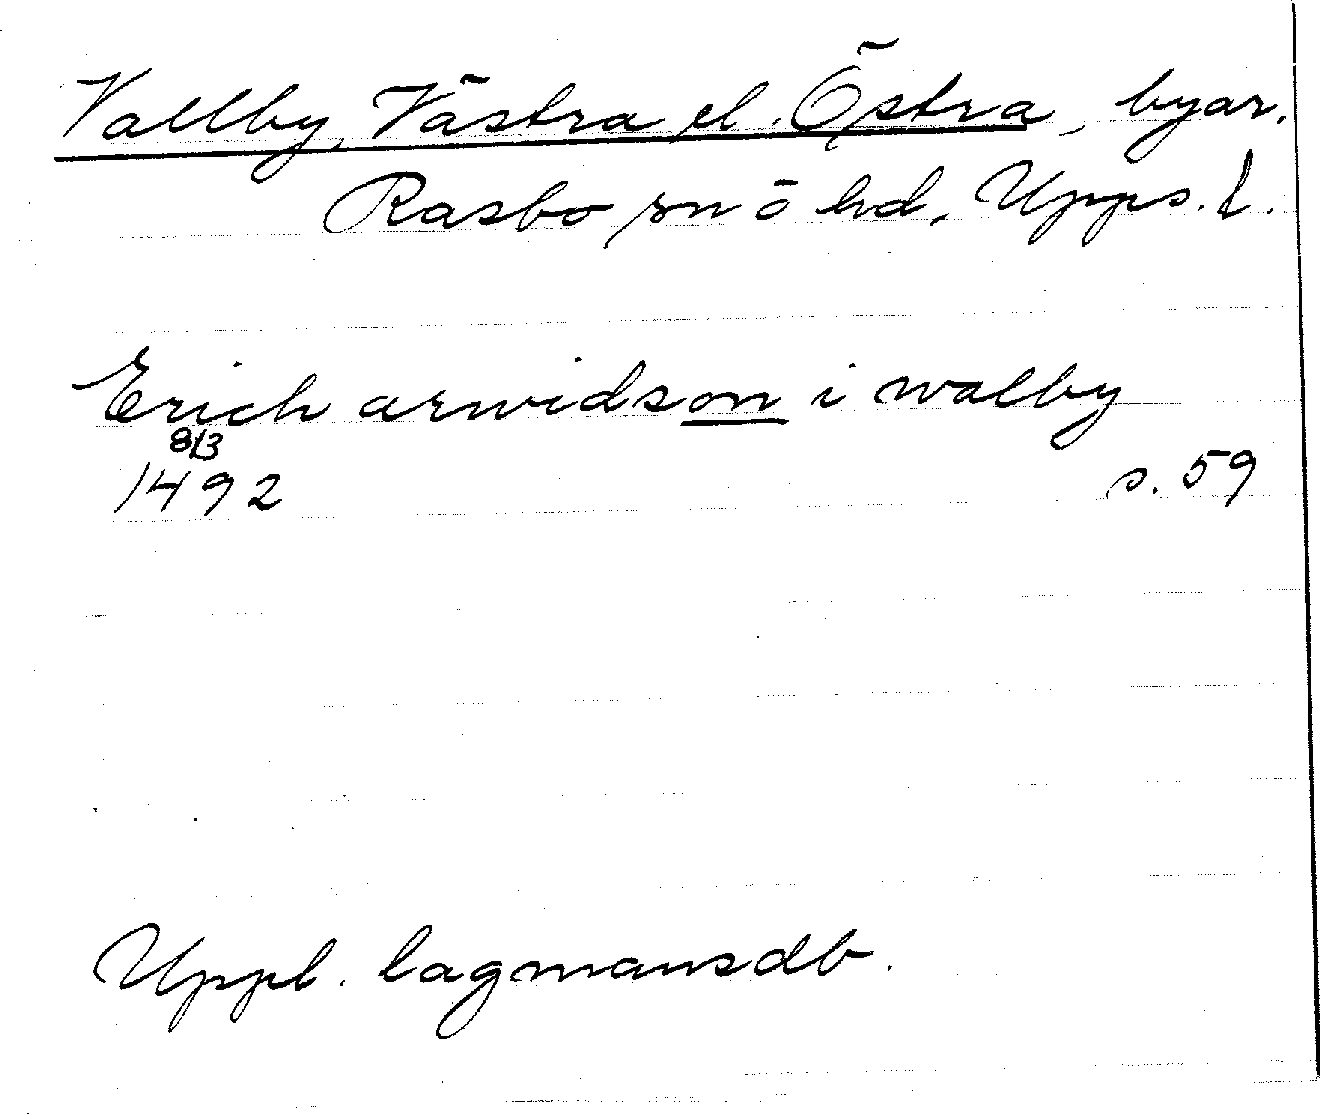 Vallby, Västra el. Östra, byar.
Rasbo sn o hd, Upps. l.
Erich arwidson i walby
8/3
1492 s. 59
Uppl. lagmansdb.